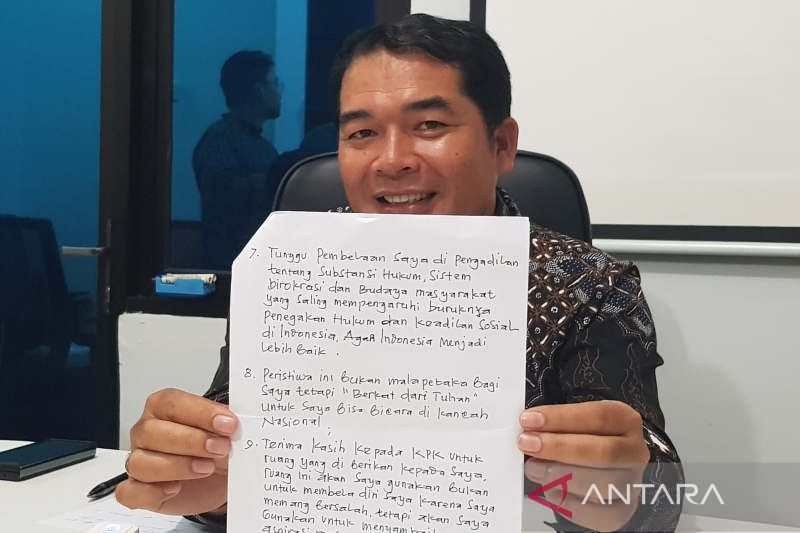 7. Tunggu Pembelaan Saya di Pengadilan
tentang Substansi Hukum, Sistem
birokrasi dan Budaya masyarakat
yang Saling mempengaruhi buruknya
Penegakan Hukum dan Keadilan Sosial
di Indonesia, Agar Indonesia Menjadi
Lebih Baik.
8. Peristiwa ini Bukan malapetaka Bagi
Saya tetapi "Berkat dari Tuhan"
Untuk Saya Bisa Bicara di kancah
Nasional;
9. Terima Kasih Kepada KPK Untuk
ruang yang di Berikan kepada Saya,
ruang ini akan Saya gunakan Bukan
Untuk membela diri Saya Karena Saya
memang Bersalah, tetapi akan Saya
Gunakan untuk menyambaik
ANTARA